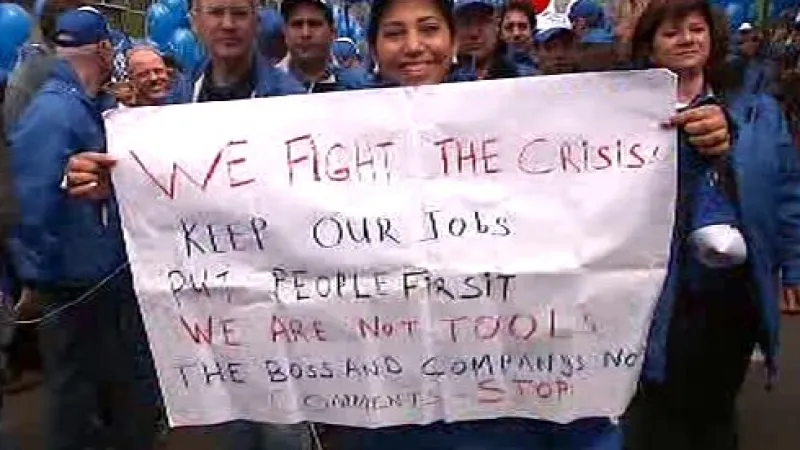 WE FIGHT THE CRISIS!
KEEP OUR Jobs
PUT PEOPLE FIRSIT
WE ARE NOT TOOLS
THE BOSS AND COMPANYS NO
COMMENTS - STOP.